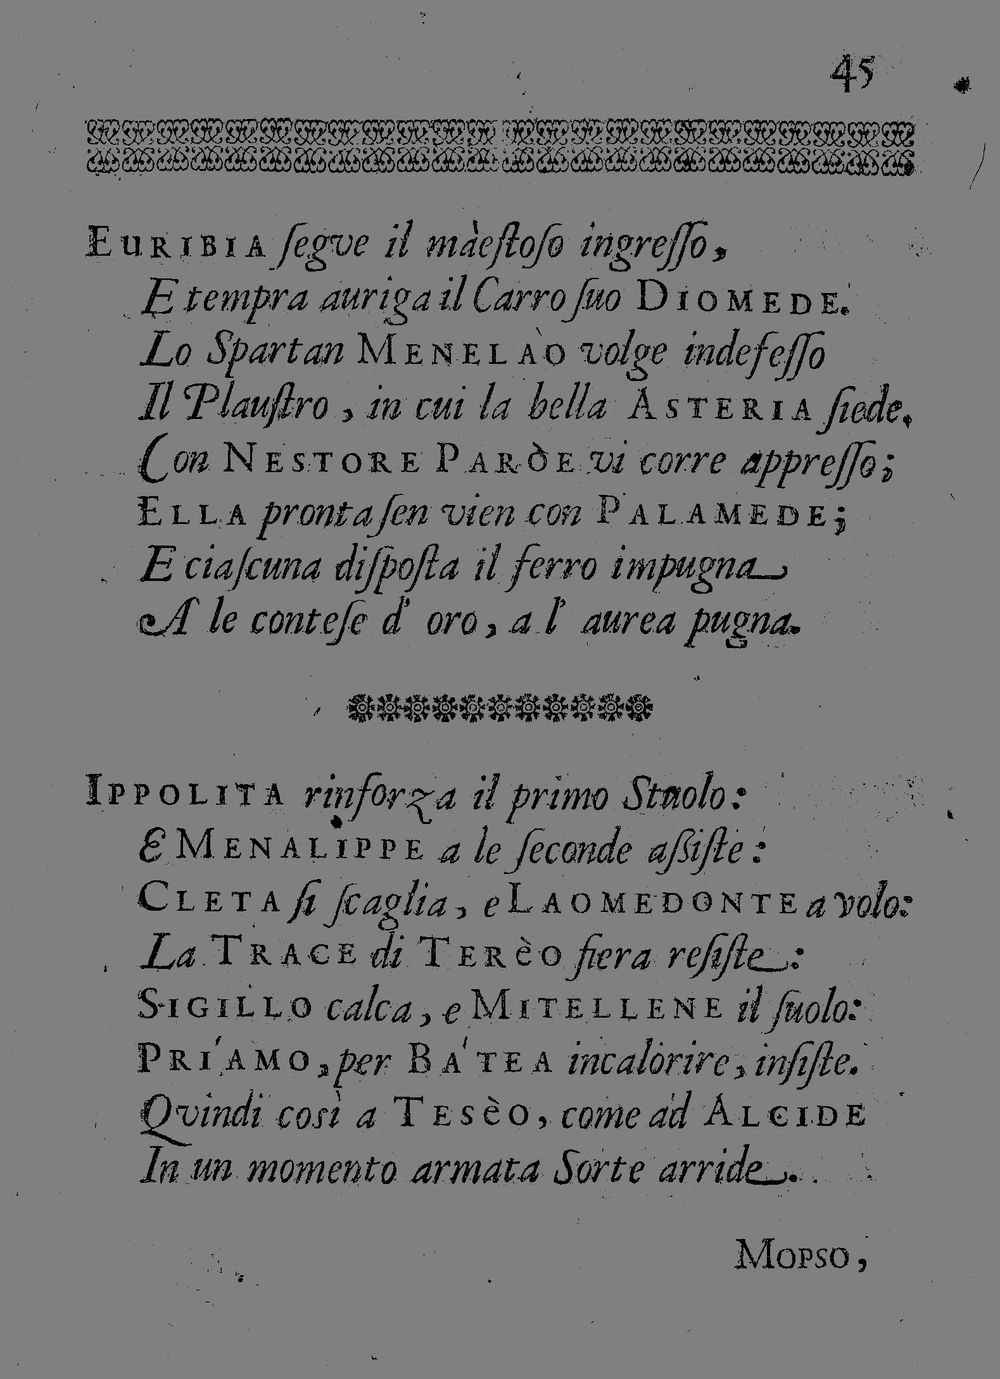 45
EURIBIA ſegve il màeſtoſo ingreſſo,
E tempra auriga il Carro ſuo DIOMEDE.
Lo Spartan MENELAÒ volge indefeſſo
Il Plauſtro, in cui la bella ASTERIA ſiede.
Con NESTORE PARÒE vi corre appreſſo;
ELLA pronta ſen vien con PALAMEDE;
E ciaſcuna diſpoſta il ferro impugna
A le conteſe d' oro, a l' aurea pugna.
IPPOLITA rinforza il primo Stuolo:
E MENALIPPE a le ſeconde aſſiſte:
CLETA ſi ſcaglia, e LAOMEDONTE a volo:
La TRACE di TERÈO fiera reſiſte:
SIGILLO calca, e MITELLENE il ſuolo:
PRÍAMO, per BÁTEA incalorire, inſiſte.
Qvindi così a TESÈO, come ad ALCIDE
In un momento armata Sorte arride.
MOPSO,